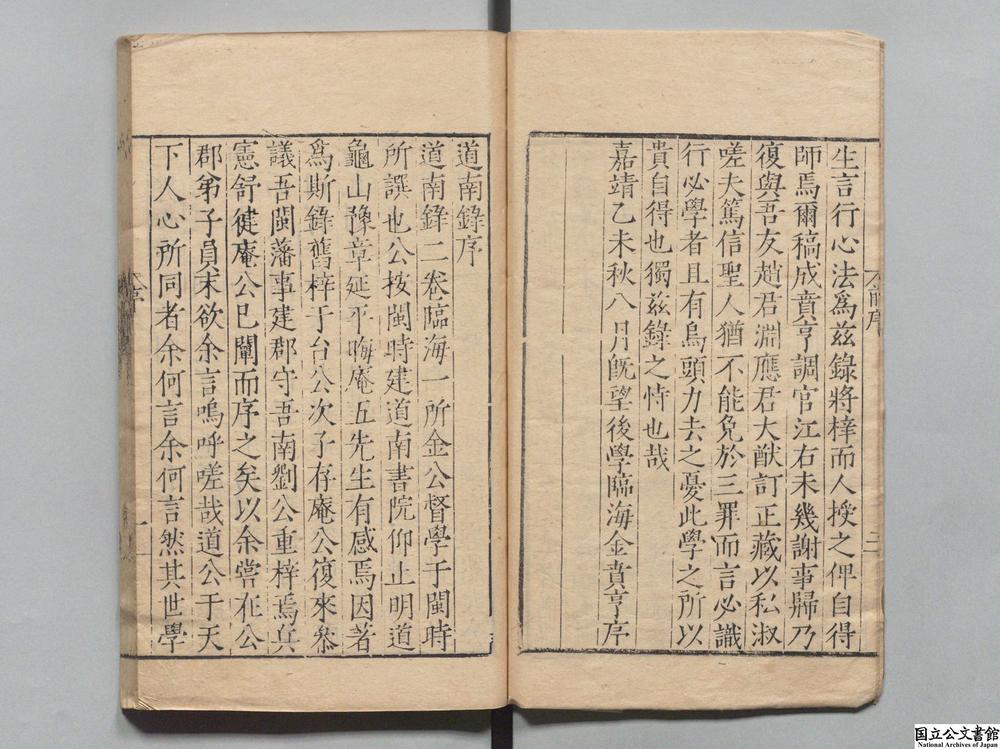 生言行心法爲兹錄將梓而人授之俾自得
師焉爾稿成賁亨調官江右未幾謝事歸乃
復與吾友趙君淵應君大猷訂正藏以私淑
嗟夫篤信聖人猶不能免於三罪而言必識
行必學者且有烏頭力去之憂此學之所以
貴自得也獨兹錄之恃也哉
嘉靖乙未秋八月旣望後學臨海金賁亨序
道南錄序
道南錄二卷臨海一所金公督學于閩時
所譔也公按閩時建道南書院仰止明道
龜山豫章延平晦庵五先生有感焉因著
爲斯錄舊梓于台公次子存庵公復來叅
議吾閩藩事建郡守吾南劉公重梓焉兵
憲舒徤庵公巳闡而序之矣以余嘗在公
郡弟子員末欲余言嗚呼嗟哉道公于天
下人心所同者余何言余何言然其世學
一
国立公文書館
National Archives of Japan